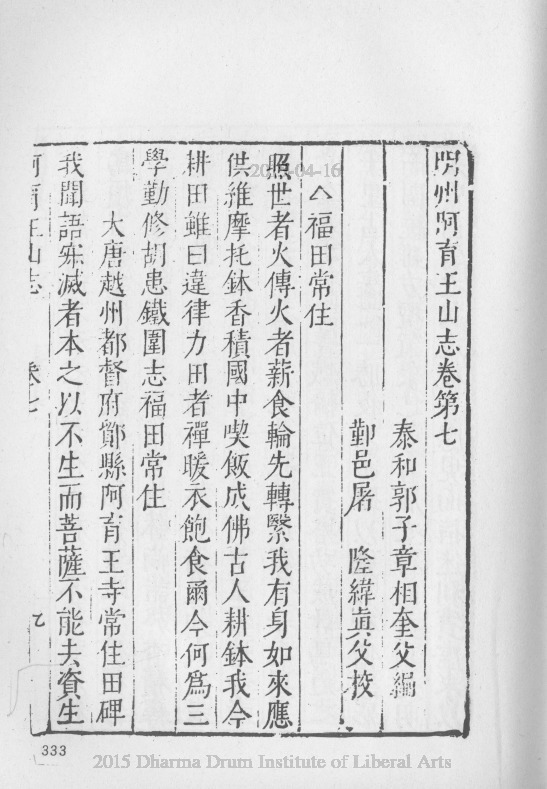 明州阿育王山志卷第七
泰和郭子章相奎父編
鄞邑屠　隆緯真父校
福田常住
照世者火傳火者薪食輪先轉繫我有身如來應
供維摩托鉢香積國中喫飯成佛古人耕鉢我今
耕田雖曰違律力田者禪暖衣飽食爾今何為三
學勤修胡患鐵圍志福田常住
大唐越州都督府鄮縣阿育王寺常住田碑
我聞語寂滅者本之以不生而菩薩不能去資生
阿育王山志　卷七
2015-04-16
333
2015 Dharma Drum Institute of Liberal Arts